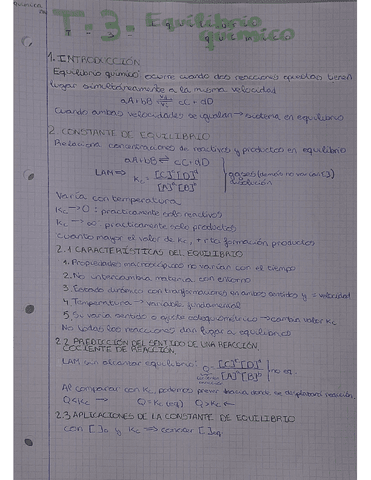 Química
T.3. Equilibrio
químico
1. INTRODUCCIÓN
Equilibrio químico: ocurre cuando dos reacciones opuestas tienen
lugar simultáneamente a la misma velocidad
aA+bB ⇌ cC + dD
Cuando ambas velocidades se igualan → sistema en equilibrio
2. CONSTANTE DE EQUILIBRIO
Relaciona concentraciones de reactivos y productos en equilibrio
aA+bB ⇌ cC+dD
LAM ⇒ Kc = [C]^c [D]^d / [A]^a [B]^b
disolución
Varía con temperatura
Kc → 0 : practicamente solo reactivos
Kc → ∞ practicamente solo productos
Cuanto mayor el valor de Kc, + rto formación productos
2.1 CARACTERÍSTICAS DEL EQUILIBRIO
1. Propiedades macroscópicas no varían con el tiempo
2. No intercambia materia con entorno
3. Estado dinámico con transformaciones en ambos sentidos y = velocidad
4. Temperatura → variable fundamental
5. Si varía sentido o ajuste estequiométrico → cambia valor Kc
No todas las reacciones dan lugar a equilibrio
2.2 PREDICCIÓN DEL SENTIDO DE UNA REACCIÓN
COCIENTE DE REACCIÓN
LAM sin alcanzar equilibrio: Q = [C]^c [D]^d / [A]^a [B]^b no eq.
Al comparar con Kc, podemos prever hacia donde se desplazará reacción
Q<Kc → Q=Kc (eq) Q>Kc ←
2.3 APLICACIONES DE LA CONSTANTE DE EQUILIBRIO
Con [ ]₀ y Kc ⇒ conocer [ ]eq